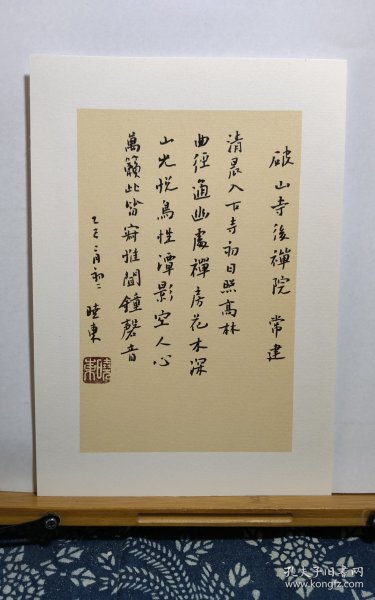 破山寺後禪院 常建
清晨入古寺初日照高林
曲徑通幽處禪房花木深
山光悅鳥性潭影空人心
萬籟此皆寂惟聞鐘磬音
乙巳二月初二 曉東
曉東
孔夫子旧书网